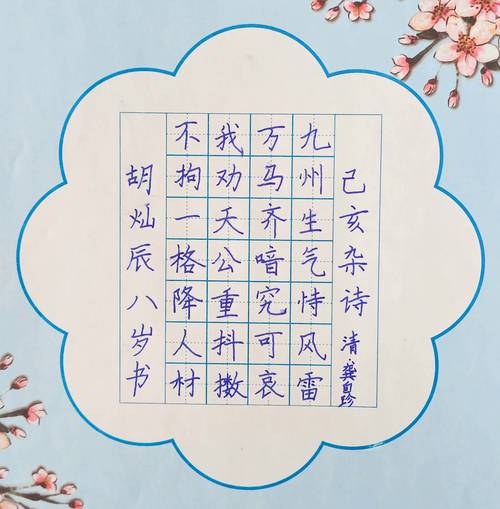 己亥杂诗 清 龚自珍
九州生气恃风雷
万马齐喑究可哀
我劝天公重抖擞
不拘一格降人材
胡灿辰八岁书